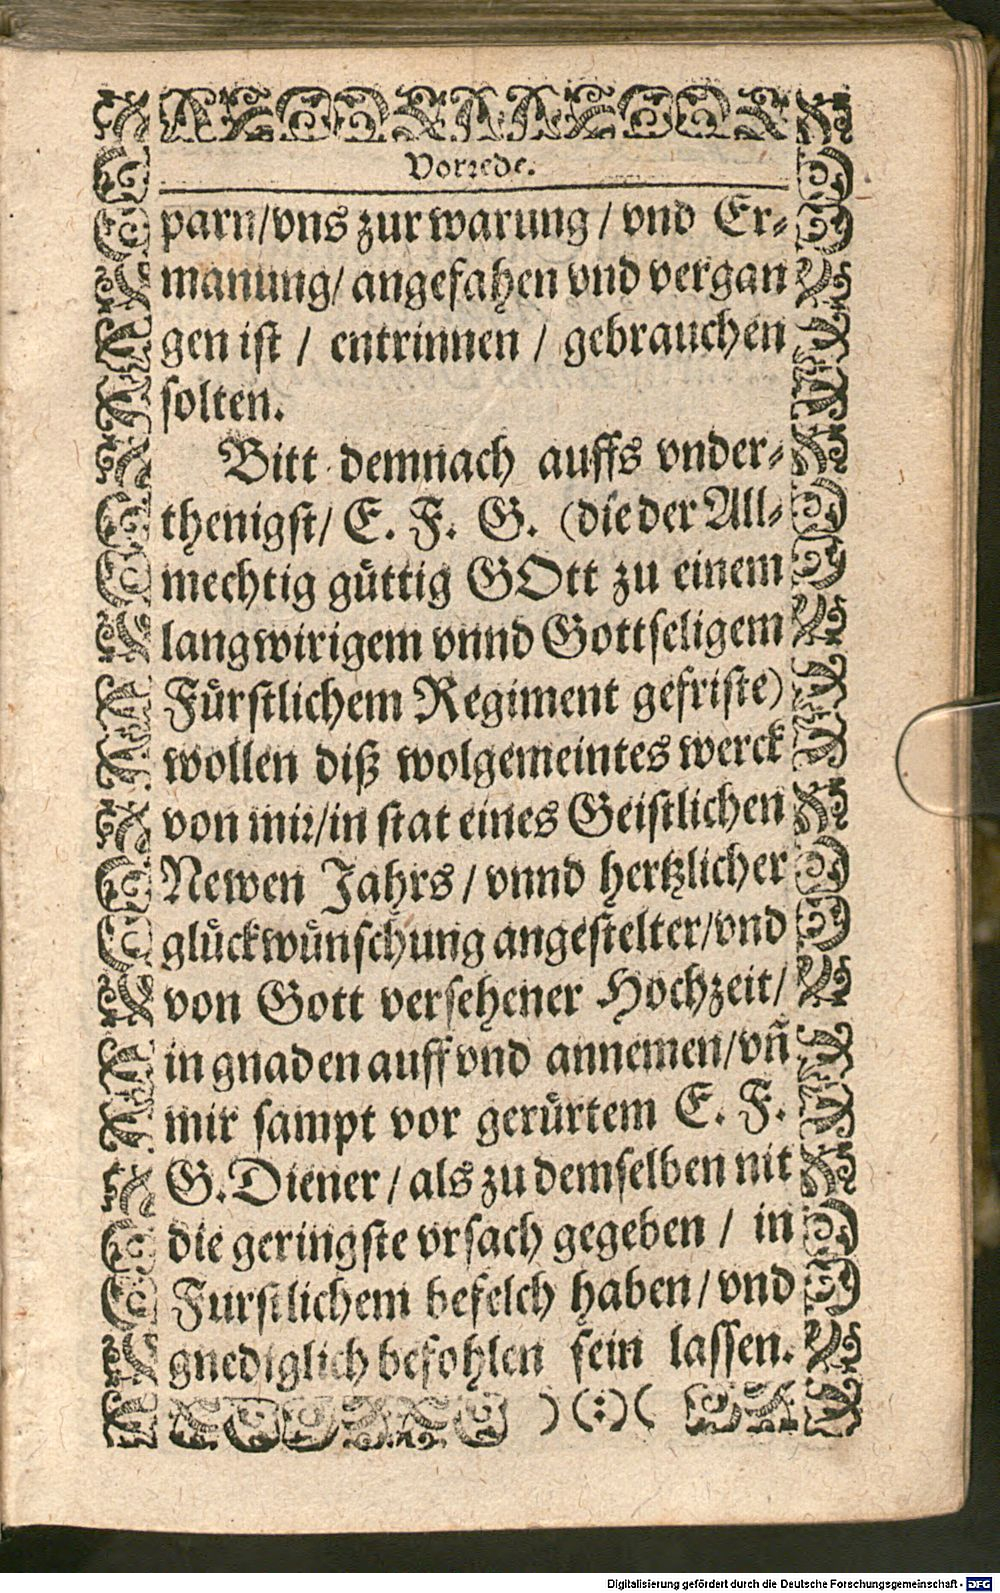 Vorrede.
parn/vns zur warung / vnd Er-
manung/ angefahen vnd vergan
gen ist / entrinnen / gebrauchen
solten.
Bitt demnach auffs vnder-
thenigst/ E. F. G. (die der All-
mechtig güttig GOtt zu einem
langwirigem vnnd Gottseligem
Fürstlichem Regiment gefriste)
wollen diß wolgemeintes werck
von mir/in stat eines Geistlichen
Newen Jahrs / vnnd hertzlicher
glückwünschung angestelter/vnd
von Gott versehener Hochzeit/
in gnaden auff vnd annemen/vñ
mir sampt vor gerürtem E. F.
G. Diener / als zu demselben nit
die geringste vrsach gegeben / in
Furstlichem befelch haben/ vnd
gnediglich befohlen sein lassen.
) (:) (
Digitalisierung gefördert durch die Deutsche Forschungsgemeinschaft - DFG